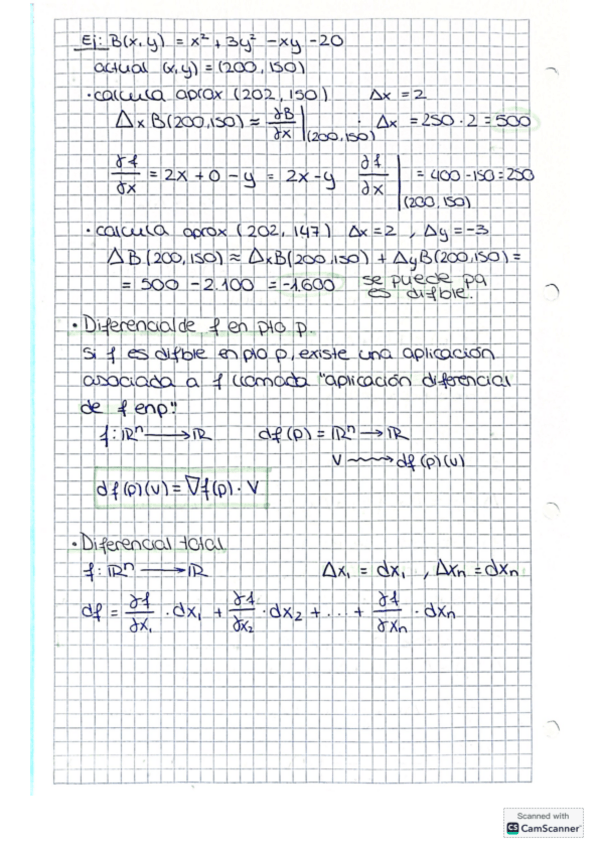 Ej: B(x,y) = x² + 3y² - xy - 20
actual (x,y) = (200, 150)
• calcula aprox (202, 150) Δx = 2
ΔxB(200,150) ≈ ∂B/∂x |(200,150) · Δx = 250 · 2 = 500
∂f/∂x = 2x + 0 - y = 2x - y ∂f/∂x |(200,150) = 400 - 150 = 250
• calcula aprox (202, 147) Δx = 2, Δy = -3
ΔB(200,150) ≈ ΔxB(200,150) + ΔyB(200,150) =
= 500 - 2.100 = -1.600 se puede pq
es difble.
• Diferencial de f en pto p.
Si f es difble en pto p, existe una aplicación
asociada a f llamada "aplicación diferencial
de f en p."
f: ℝⁿ → ℝ df(p) = ℝⁿ → ℝ
v ⟿ df(p)(v)
df(p)(v) = ∇f(p) · v
• Diferencial total
f: ℝⁿ → ℝ Δx₁ = dx₁, Δxn = dxn
df = ∂f/∂x₁ · dx₁ + ∂f/∂x₂ · dx₂ + ... + ∂f/∂xn · dxn
Scanned with
CS CamScanner